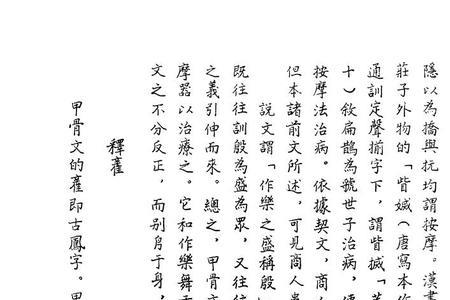 隱以為撟與抏均謂按摩。漢書
莊子外物的「眥媙（唐寫本作
通訓定聲揃字下，謂眥搣「
十）敘扁鵲為虢世子治病，
按摩法治病。依據契文，商人
但本諸前文所述，可見商人
說文謂「作樂之盛稱殷
既往往訓殷為盛為眾，又往往
之義引伸而來。總之，甲骨文
摩器以治療之。它和作樂舞
文之不分反正，而别㐆于身，
釋雈
甲骨文的雈即古鳳字。甲